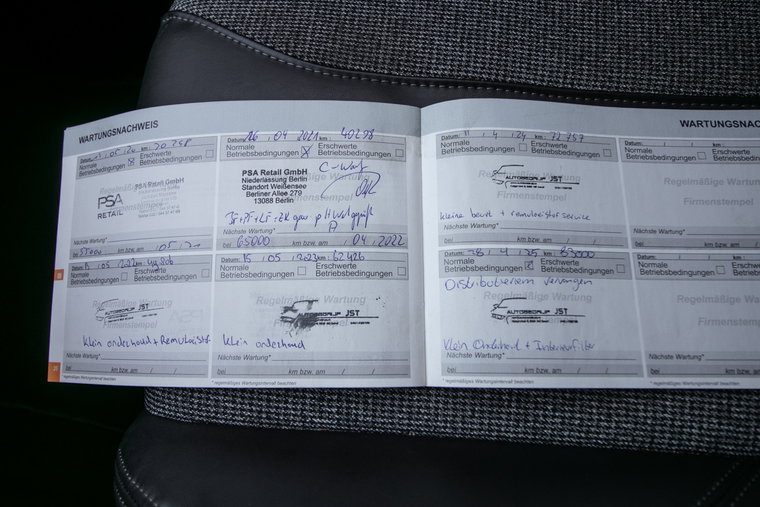 WARTUNGSNACHWEIS
Datum: 05 20 km:
Normale Betriebsbedingungen
Erschwerte Betriebsbedingungen
PSA RETAIL
PSA Retail GmbH
Nächste Wartung*
bei 55000 km bzw. am
Datum: 26 . 04 2021 km: 40298
Normale Betriebsbedingungen
Erschwerte Betriebsbedingungen
PSA Retail GmbH
Niederlassung Berlin
Standort Weißensee
Berliner Allee 279
13088 Berlin
Regelmäßige Wartung
Firmenstempel
Nächste Wartung*
bei 65000 km bzw. am . 04 . 2022
Datum: 05 2022 km:
Normale Betriebsbedingungen
Erschwerte Betriebsbedingungen
Regelmäßige Wartung
Firmenstempel
AUTOBEDRIJF JST
Klein onderhoud + Remvloeistof
Nächste Wartung*
bei km bzw. am
* regelmäßiges Wartungsintervall beachten
Datum: 15 . 05 . 2023 km: 62426
Normale Betriebsbedingungen
Erschwerte Betriebsbedingungen
Regelmäßige Wartung
AUTOBEDRIJF JST
Klein onderhoud
Nächste Wartung*
bei km bzw. am
* regelmäßiges Wartungsintervall beachten
WARTUNGSNAC
Datum: 11 . 4 . 24 km: 72757
Normale Betriebsbedingungen
Erschwerte Betriebsbedingungen
Regelmäßige Wartung
Firmenstempel
AUTOBEDRIJF JST
kleine beurt + remvloeistof service
Nächste Wartung*
bei km bzw. am
Datum: 4 . 25 km:
Normale Betriebsbedingungen
Erschwerte Betriebsbedingungen
Distributieriem vervangen
Regelmäßige Wartung
Firmenstempel
AUTOBEDRIJF JST
Klein Onderhoud + Interieurfilter
Nächste Wartung*
bei km bzw. am
* regelmäßiges Wartungsintervall beachten
Datum: km:
Normale Betriebsbedingungen
Regelmäßige Wartung
Firmenstempel
Nächste Wartung*
bei km bzw. am
Datum: km:
Normale Betriebsbedingungen
Regelmäßige Wart
Firmenstempel
Nächste Wartung*
bei km bzw. am
* regelmäßiges Wartungsintervall beachten